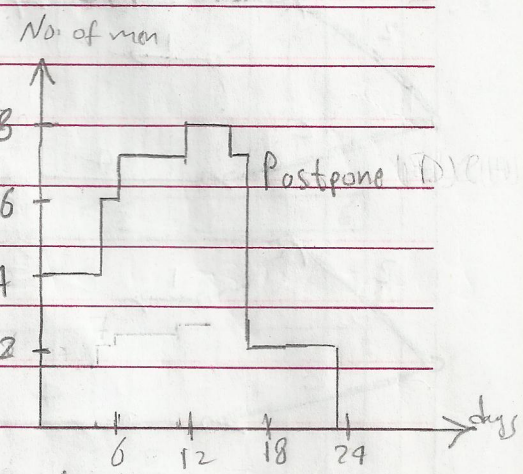 No. of men
8
Postpone
6
4
2
6 12 18 24
days